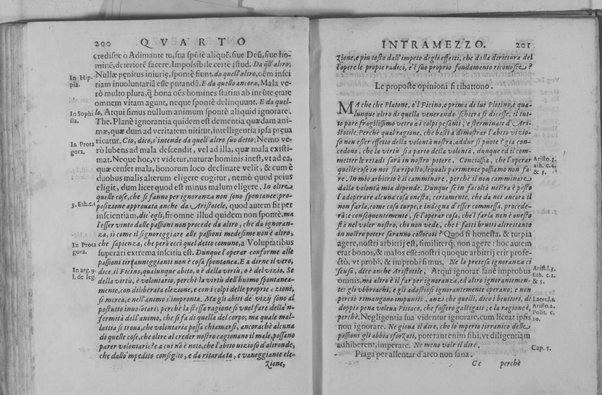 200 QVARTO
credisse o Adimante tu, sua spōte aliquē, siue Deū, siue ho-
minē, deteriorē facere. Impossibile certè istud. Da quell'altro.
Nullæ penitus iniuriæ, spontè sunt. da quell'altro, omnē iusti
tiam inuoluntariā esse putandā. E da quello ancora, Mala ve-
In Hip
pia.
rò multo plura, q̄ bona oēs homines statim ab ineūte ætate
omnem vitam agunt, neque spontè delinquunt. E da quel-
In Sophi
sta.
la. Atqui scimus nullum animum spontè aliquid ignorare.
The. Planè ignorantia quidem est dementia quædam ani-
mæ, quæ dum ad veritatem nititur, intelligentia ipsa præua
In Prota
gora.
ricatur. Cio, dico, s'intende da quell'altro suo detto; Nemo ve-
rò labens ad mala descendit, vel ad illa, quæ mala existi-
mat. Neque hoc, vt videtur, naturæ hominis inest, vt ad ea,
quæ censet mala, bonorum loco declinare velit, & cum è
duobus malis alterum eligere cogitur, nemo quod peius
eligit, dum licet quod est minus malum eligere. In oltre
quelle cose, che si fanno per ignoranza non sono spontanee: pro-
3. Eth. c. 1
posizione approuata anche da Aristotele, quod autem sit per
inscientiam, dic'egli, sit omne illud quidem non spontè. ma
l'esser vinto dalle passioni non procede da altro, che da ignoran-
za, sì come il signoreggiare alle passioni medesime non è altro,
In Prota
gora.
che sapienza, che però ecci quel detto comune, a Voluptatibus
superari extrema inscitia est. Dunque l'operar conforme alle
passioni trapanneggianti non è cosa spontanea. E a dirne il vero,
In arg. 9
l. de leg.
dice, il Ficino, qualunque abito, o è della virtù, o è del vizio. Se
della virtù, è volontario, perchè la virtù dell'huomo spontanea-
mente, con deliberata elezione, e con i colpi delle proprie azioni,
si merca, e nell'animo s'impronta. Ma gli abiti de' vizij sono al
postutto inuolōtarij, perchè la stessa ragione si vuol fare dell'in-
fermità dell'animo, che si fa di quella del corpo; ma quale ma-
lattia si troua, che volontaria possa chiamarsi, ancorachè alcuna
di quelle cose, che oltre al creder nostro cagionano il male, possono
parer volontarie; a cui nō è noto, che l'abito uiziosō d'altronde,
che dall'impedito consiglio, e da ritardata, e vaneggiante ele-
zione,
INTRAMEZZO. 201
zione, e più tosto dall'impeto degli effetti, che da dirittura del-
l'opere le propie radici, e'l suo proprio fondamento riconosce?
Le proposte opinioni si ribattono.
MA che che Platone, e'l Ficino, e prima di lui Plotino, e qua-
lunque altro di quella veneranda schiera si dicesse, il tut-
to pare fragilissimo vetro a' colpi pesanti, e sterminati d'Ari-
stotile. Perchè qual ragione, che basti a dimostrar l'abito vizio-
so non esser effetto della volontà nostra, addur si puote? già con-
cedono, che le virtù sia parto della volontà, dunque il com-
mettere le reità sarà in nostro potere. Conciossia, che l'operar
quelle cose in noi sia riposto, le quali parimente possiamo non fa-
Aristo. 3.
Eth. c. 2.
& 5.
re. In mio arbitrio è il camminare, perchè il non camminare
dalla volontà mia dipende. Dunque se in facoltà nostra è posto
l'adoperare alcuna cosa onesta, certamente, che da noi ancora il
non farla, come cosa turpe, e indegna d'esser commessa, procede-
rà: conseguentemente, se l'operar cosa, che'l farla non è onesto
stà nel voler nostro, chi non vede, che i fatti brutti altrettanto
in nostro potere saranno collocati? Quod si honesta, & turpia
agere, nostri arbitrij est, similiterq́; non agere: hoc autem
erat bonos, & malos esse: nostri quoque arbitrij erit profe-
ctò, vt probi, & improbi simus. Nè la pretesa ignoranza ci
scusa, dice anche Aristotele. Atqui ignorat fanè improbus
Arist. 3.
Eth. c. 2.
& 5.
omnis, ma altro è il far per ignoranza, ed altro ignorantemen-
te: gli vbbriachi, e gli adastiosi ignorantemente operano, e non
perciò rimangono impuniti, anzi che quelli, dice i beuitori, di
doppia pena voleua Pittaco, che fossero gastigati; e la ragione,
Laert. l. 1.
Aristo. 2.
Polit. c.
10.
perchè. Negligentia sua videntur ignorare, cum liceat ipsis
non ignorare. Nè gioua il dire, che lo imperio tirannico delle
passioni gli abbia sforzati, poterant enim sibi, vt diligentiam
adhiberent, imperare. Nè meno vale il dire.
Cap. 7.
Piaga per allentar d'arco non sana.
Cc perchè